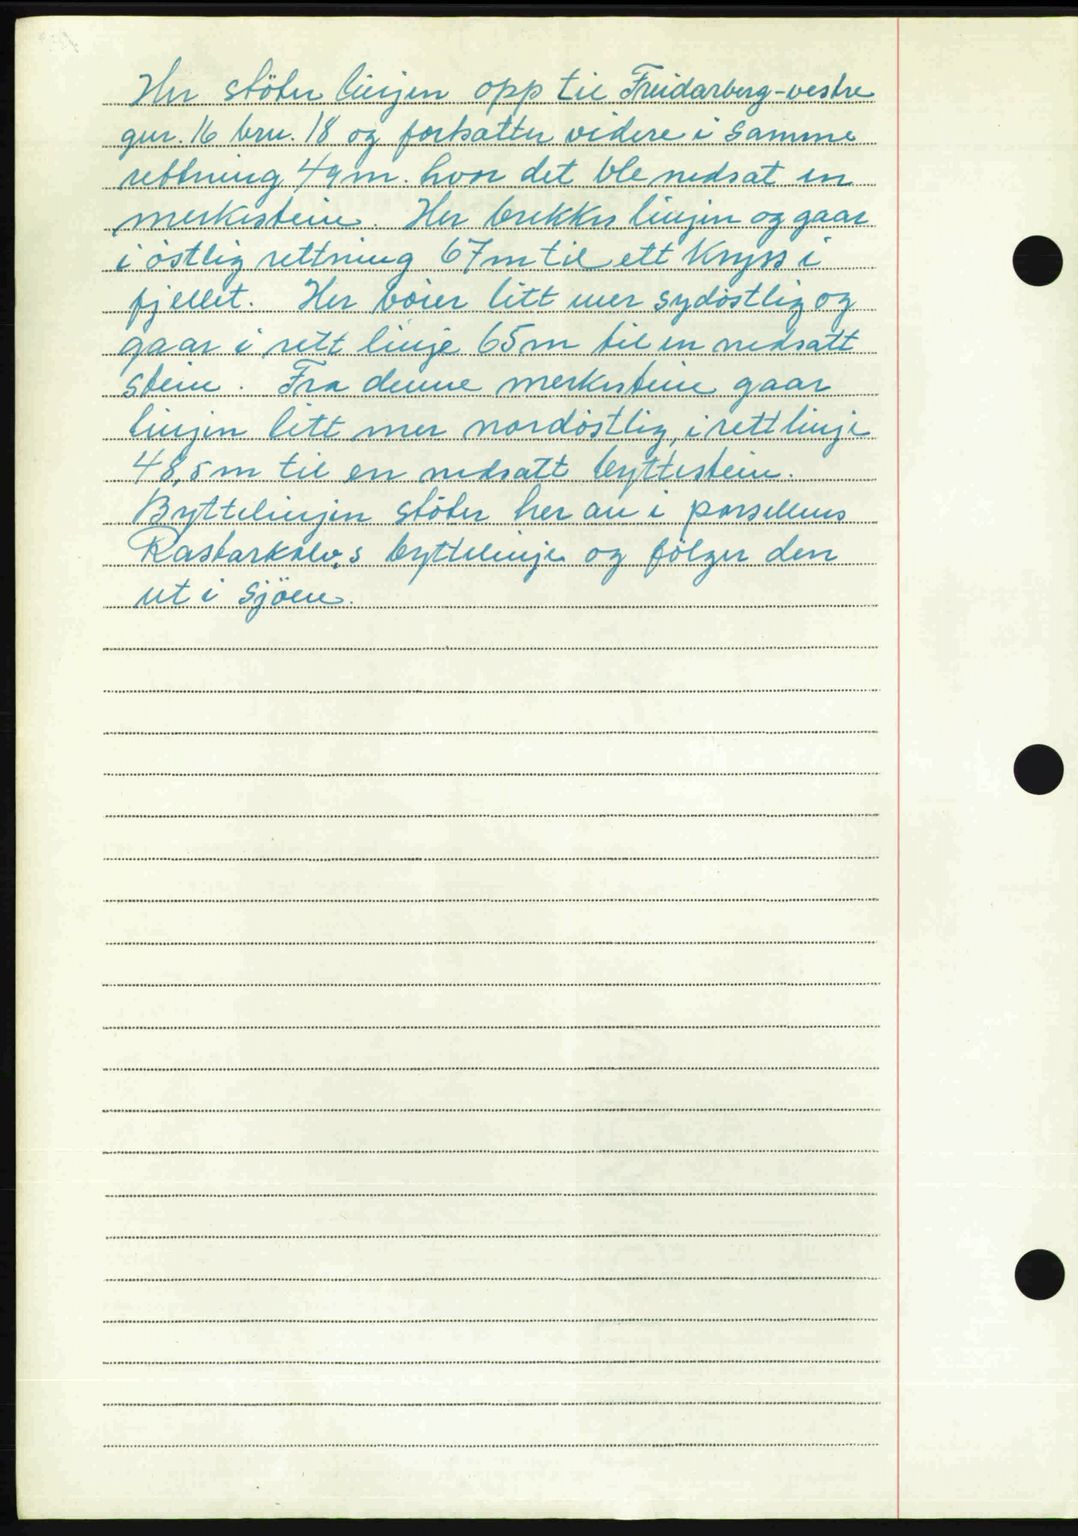 Her stöter linjen opp til Freidarberg-vestre
gnr. 16 bnr. 18 og fortsatter videre i samme
rettning 49m. hvor det ble nedsat en
merkestein. Her brekker linjen og gaar
i östlig rettning 67m til ett kryss i
fjellet. Her böier litt mer sydöstlig og
gaar i rett linje 65m til en nedsatt
stein. Fra denne merkestein gaar
linjen litt mer nordöstlig, i rett linje
48,5m til en nedsatt byttestein.
Byttelinjen stöter her an i parsellens
Rastarkalv,s byttelinje og fölger den
ut i sjöen.